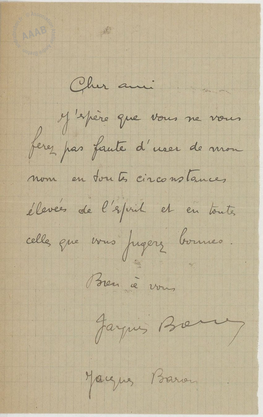 AAAB
Cher ami
J'espère que vous ne vous
ferez pas faute d'user de mon
nom en toutes circonstances
élevées de l'esprit et en toutes
celles que vous jugerez bonnes.
Bien à vous
Jacques Baron
Jacques Baron